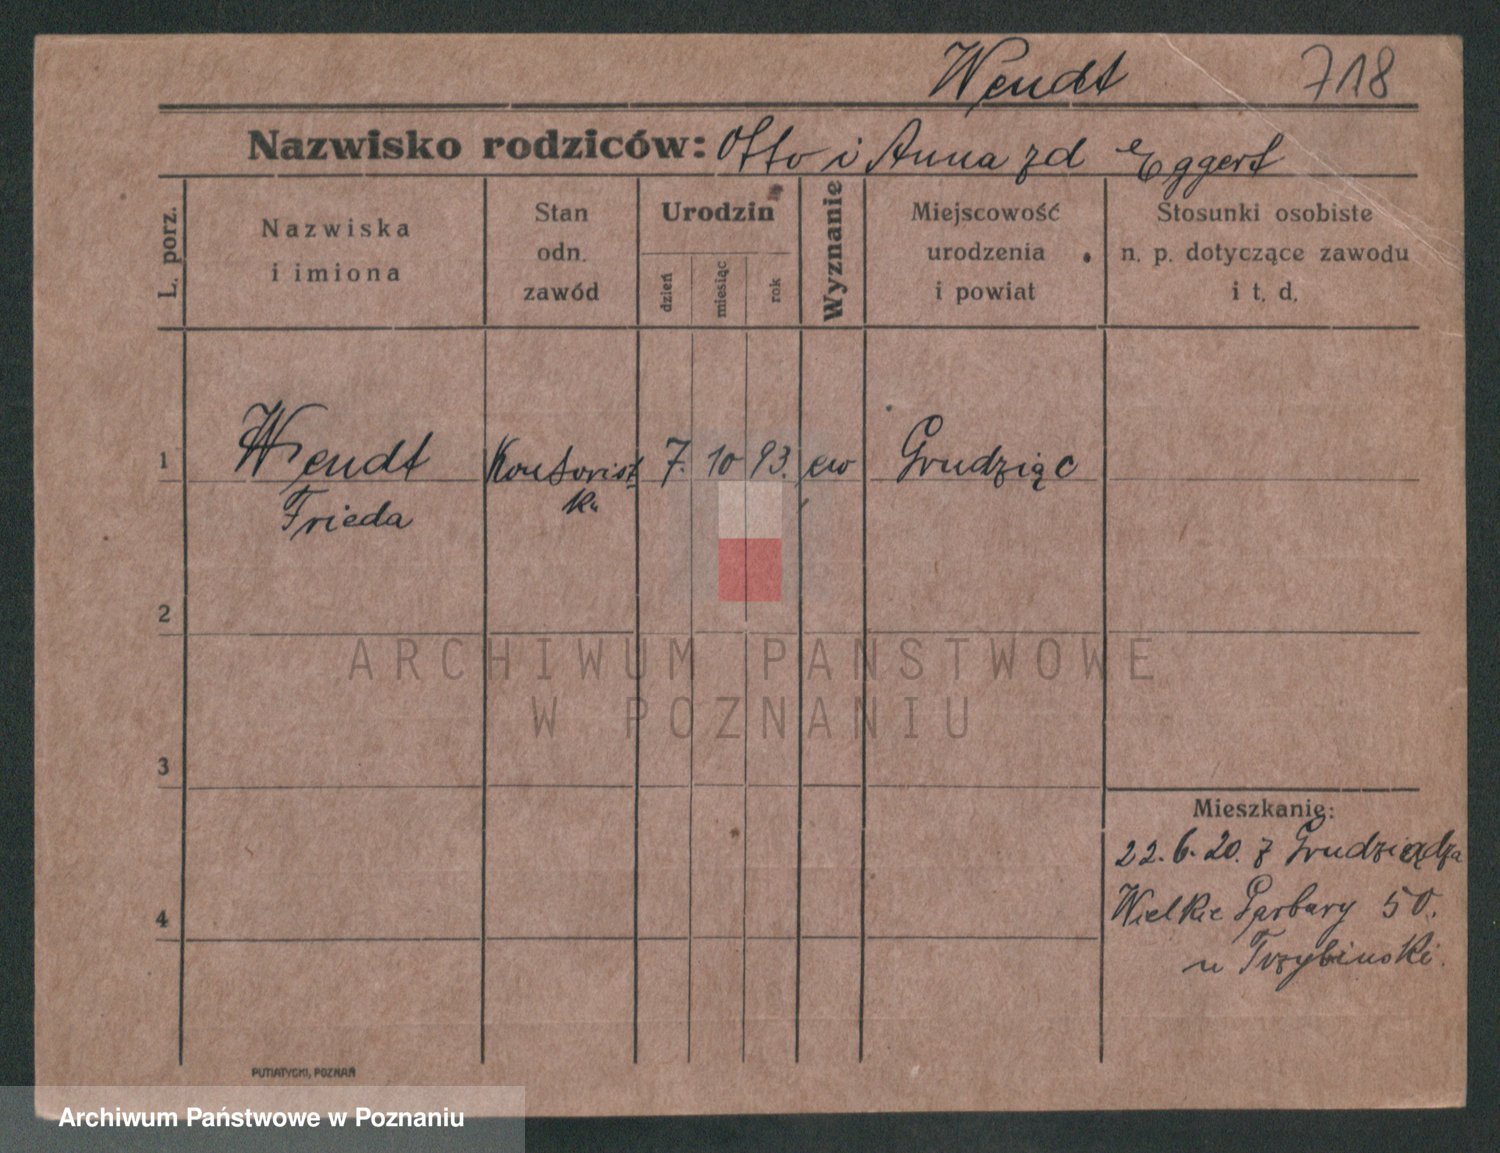 Wendt 718
Nazwisko rodziców: Otto i Anna zd Eggert
L. porz.
Nazwiska
i imiona
Stan
odn.
zawód
Urodzin
dzień
miesiąc
rok
Wyznanie
Miejscowość
urodzenia
i powiat
Stosunki osobiste
n. p. dotyczące zawodu
i t. d.
1 Wendt Kontorist 7. 10 93. ew Grudziąc
Frieda ka
2
3
4
Mieszkanie:
22. 6. 20. z Grudziądza
Wielkie Garbary 50.
u Trzybinski.
PUTIATYCKI, POZNAŃ
ARCHIWUM PAŃSTWOWE
W POZNANIU
Archiwum Państwowe w Poznaniu